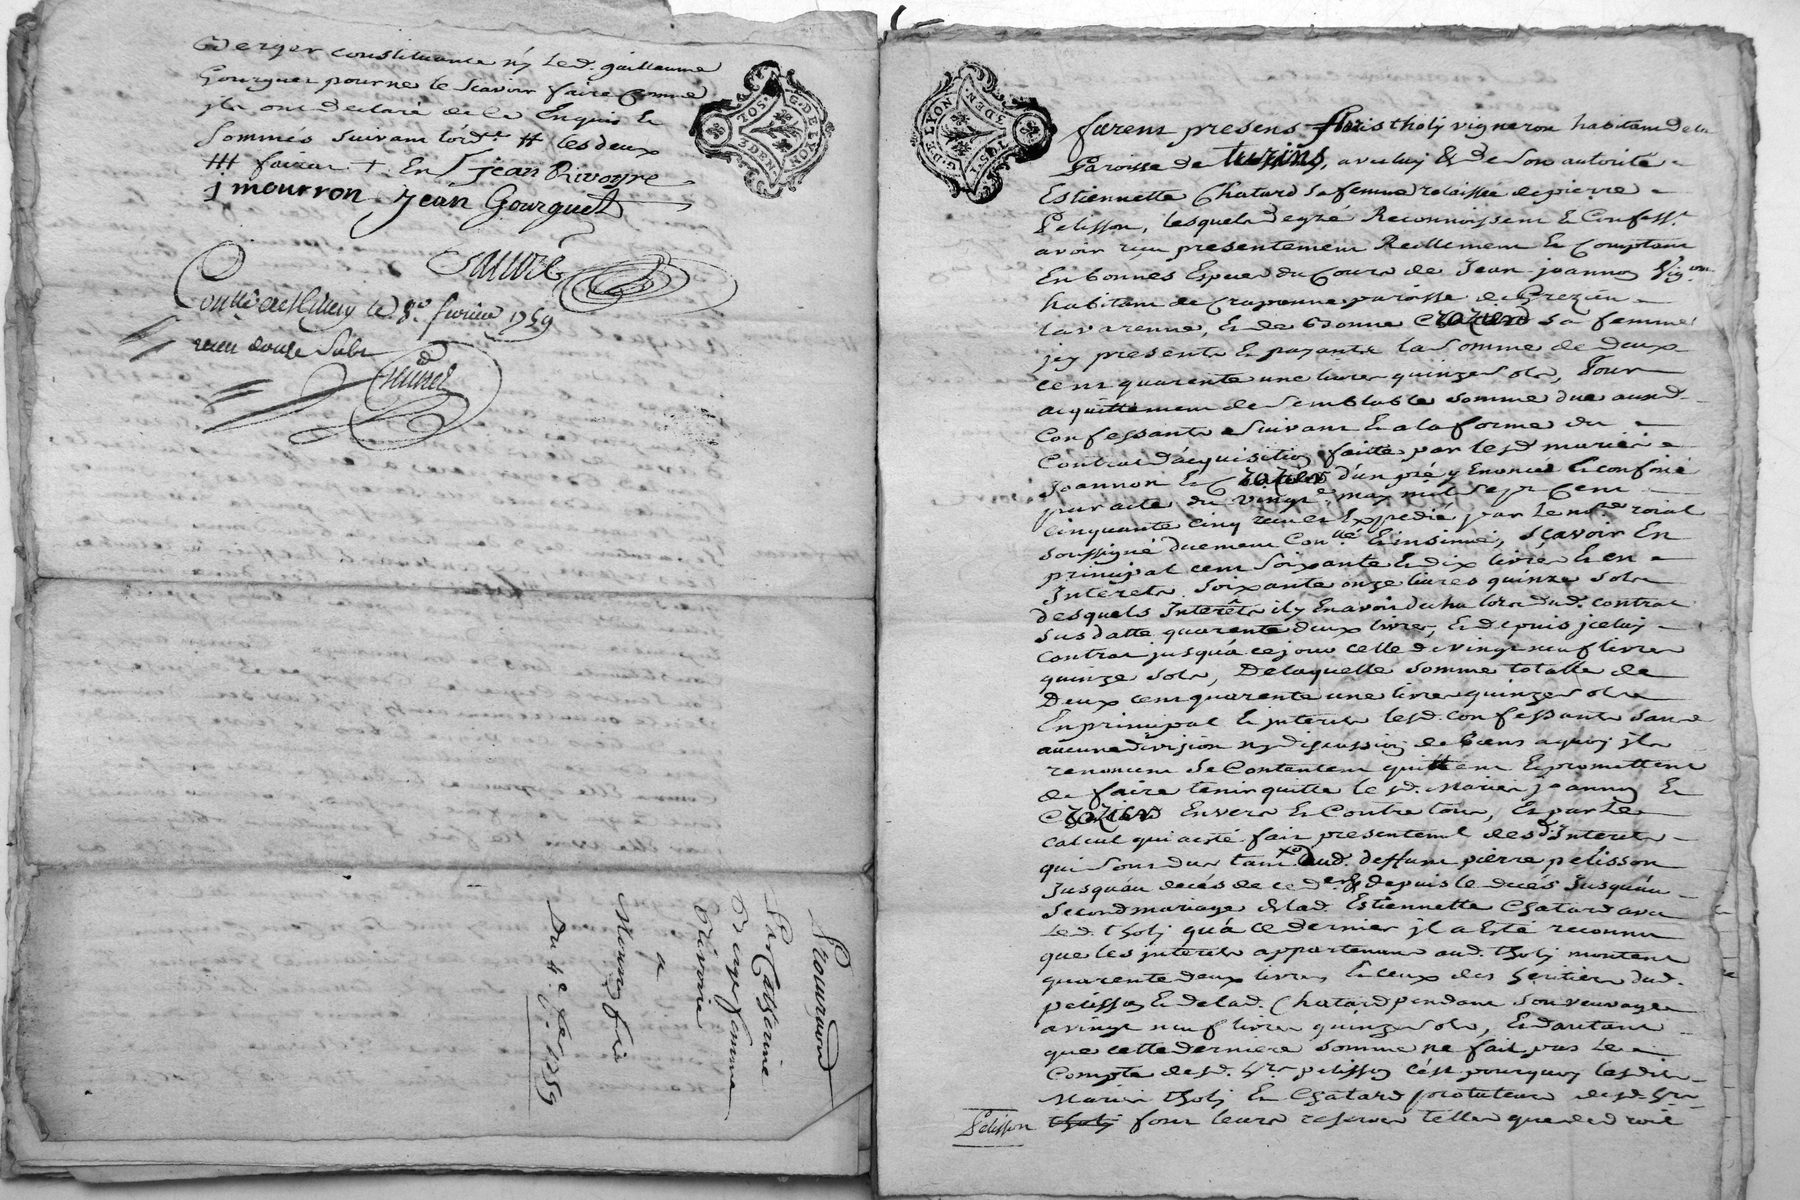 Berger constituante ny led. guillaume
Gourguet pour ne le scavoir faire comme
ils ont declaré de ce Enquis et
Sommés suivant lord.ce # les deux
## faisan + En Jean Rivoyre
J mourron Jean Gourguet
Sauvé
Conllé le 8.e fevrier 1759
receu douze sols
G. DE LYON
Procuration
Par Catherine
Berger femme
Rivoirie
a
Mourron fils
Du 4.e fe.er 1759
G. DE LYON
furent presens floris tholy vigneron habitant de la
Paroisse de turins, avec luy & de son autorité
Estiennette Chatard sa femme relaissée de pierre
Pelisson, lesquels de gré Reconnoissent et Confess.t
avoir reçu presentement Reellement et Comptant
En bonnes Especes du Cours de Jean joannon Vig.on
habitant de Craponne paroisse de Grezieu
lavarenne, et de Bonne Crozier sa femme
icy presents et payants la somme de deux
cent quarente une livres quinze sols, Pour
acquittement de semblable somme due auxd.
Confessants suivant et a la forme du
Contrat d'acquisition faitte par lesd. mariés
Joannon et Crozier d'un pré y Enoncé et confiné
par acte du vingt may mil sept Cent
cinquante cinq receu et Expedié par le no.re roial
soussigné duement Con.llé et insinué, sçavoir En
principal cent soixante et dix livres et en
Interets soixante onze livres quinze sols
desquels Interets il y en avoit du lors dud. contrat
susdatte quarente deux livres, et depuis iceluy
contrat jusqu'a ce jour celle de vingt neuf livres
quinze sols, De laquelle somme totalle de
Deux cent quarente une livres quinze sols
En principal et interets lesd. confessants sans
aucune division ny discussion de biens a quoy ils
renoncent se Contentent quittent et promettent
de faire tenir quitte lesd. Mariés joannon et
Crozier Envers et Contre tous, et par le
calcul qui a eté fait presentement desd. Interets
qui sont dus tant aud. deffunt pierre pelisson
Jusqu'au decés de ce d.er & depuis le decés Jusqu'au
second mariage de lad. Estiennette Chatard avec
led. tholy qu'a ce dernier il a Esté reconnu
que les interets appartenant aud. tholy montent
quarente deux livres, et ceux des heritiers dud.
pelisson et de lad. Chatard pendant son veuvage
a vingt neuf livres quinze sols, et d'autant
que cette derniere somme ne fait pas le
Compte desd. h.rs pelisson c'est pourquoy lesdits
Mariés tholy et Chatard protuteurs desd. h.rs
Pelisson tholy font leurs reserves telles que de droit